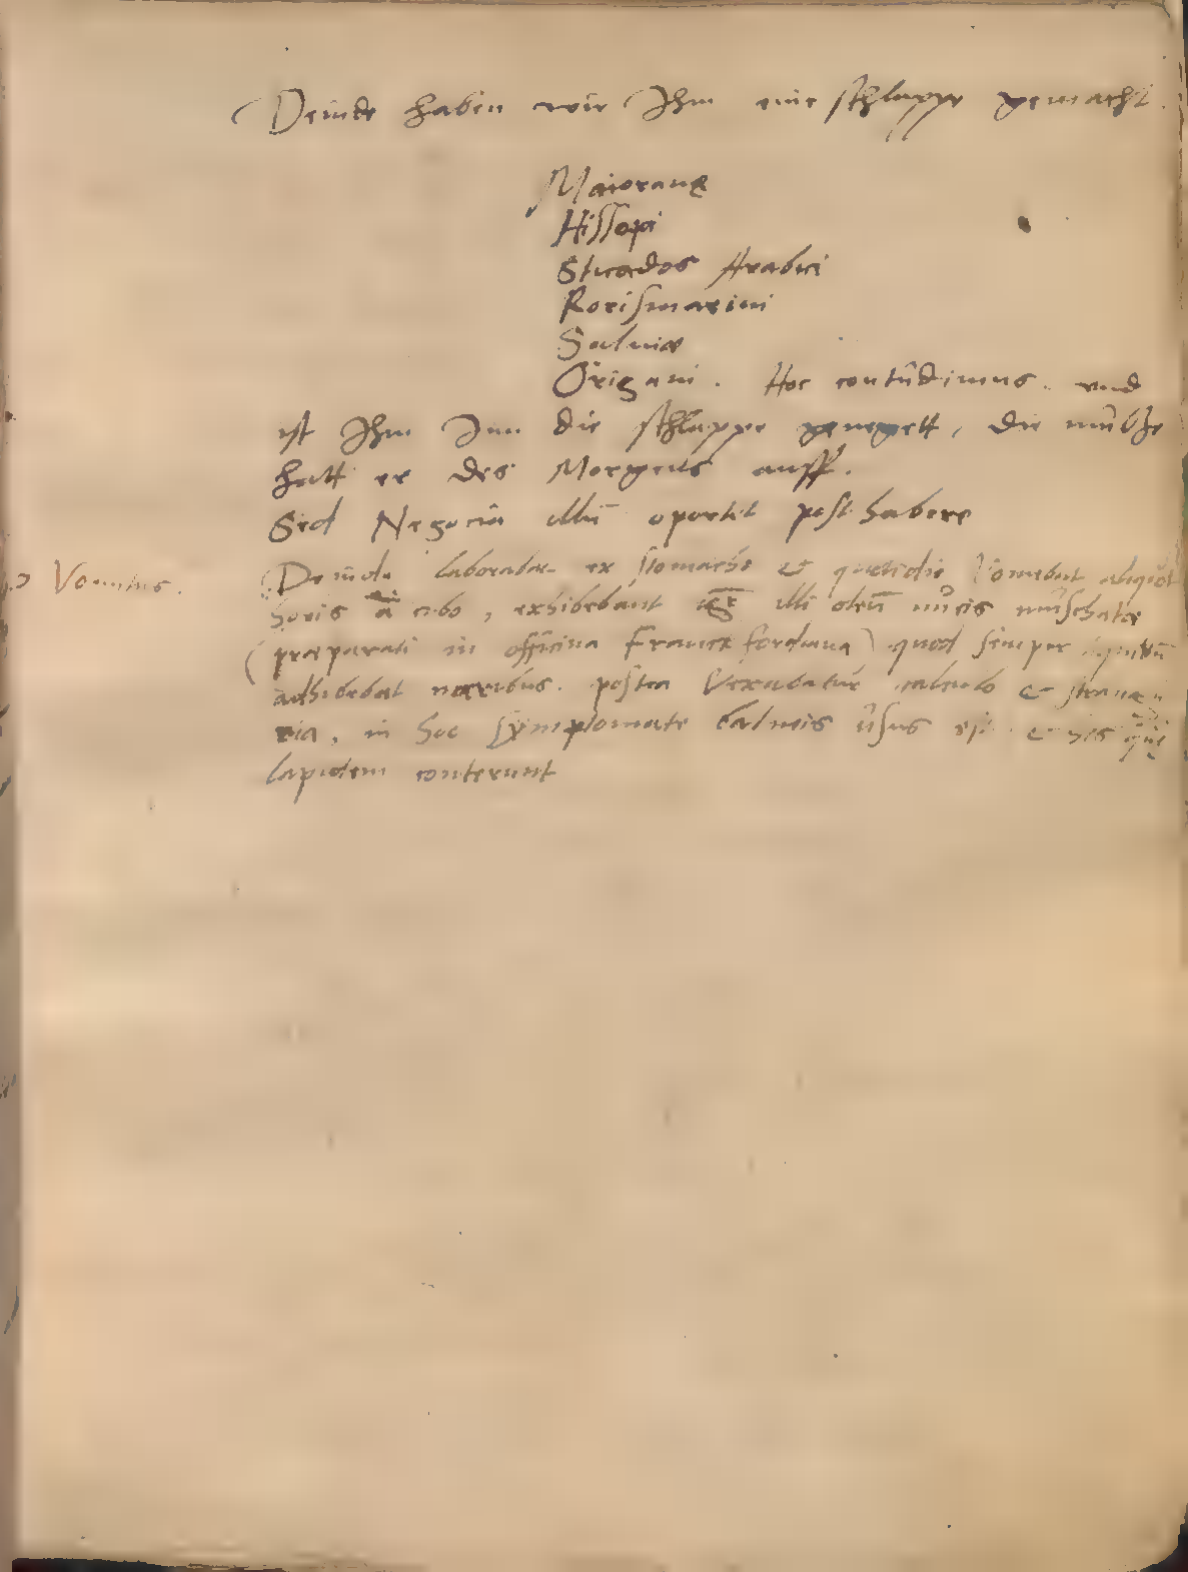 Deinde haben wir Ihm eine schlappe gemacht.
Maioranę
Hissopi
Sticados Arabici
Rorismarini
Saluiæ
Origani. Hoc contûdimus. vnd
ist Ihm Inn die schlappe genegett, die mûtze
hatt er des Morgens auff.
Sed Negocia illũ oportet posthabere
Vomitus.
Deinde laborabat ex stomacho et quotidie Vomebat aliquot
horis à cibo, exhibebant illi oleũ nûcis mûschatæ
(præparati in officina Franckfordiana) quod semper
adhibebat naribus. postea Vexabatur calculo et
ria, in hoc symptomate balneis ûsus est et his quę
lapidem conterunt